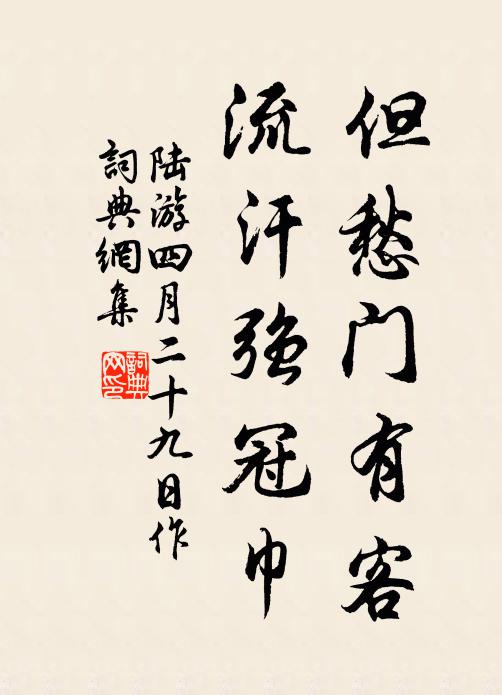 但愁门有客
流汗强冠巾
陆游四月二十九日作
詞典網集
詞典网印